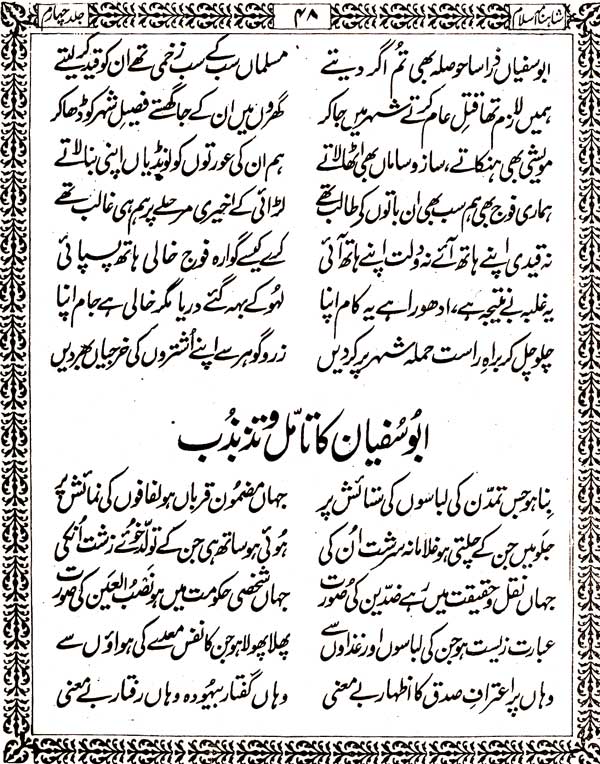 شاہنامہ اسلام ۴۸ جلد چہارم
ابو سفیاں ذرا سا حوصلہ بھی تم اگر دیتے مسلماں سب کے سب زخمی تھے ان کو قید کر لیتے
ہمیں لازم تھا قتلِ عام کرتے شہر میں جا کر گھروں میں ان کے جا گھستے فصیلِ شہر کو ڈھا کر
مویشی بھی ہنکاتے، ساز و ساماں بھی اٹھا لاتے ہم ان کی عورتوں کو لونڈیاں اپنی بنا لاتے
ہماری فوج بھی ہم سب بھی ان باتوں کے طالب تھے لڑائی کے اخیری مرحلے پر ہم ہی غالب تھے
نہ قیدی اپنے ہاتھ آئے نہ دولت اپنے ہاتھ آئی کرے کیسے گوارہ فوج خالی ہاتھ پسپائی
یہ غلبہ بے نتیجہ ہے، ادھورا ہے یہ کام اپنا لہو کے بہہ گئے دریا مگر خالی ہے جام اپنا
چلو چل کر براہِ راست حملہ شہر پر کر دیں زر و گوہر سے اپنے اُشتروں کی خرجیاں بھر دیں
ابو سُفیان کا تامّل و تذبذُب
بِنا ہو جس تمدّن کی لباسوں کی ستائش پر جہاں مضمون قرباں ہو لفافوں کی نمائش پر
جلو میں جن کے چلتی ہو غلامانہ سرشت اُن کی ہوئی ہو ساتھ ہی جن کے تولّد خوئے زشت اُنکی
جہاں نقل و حقیقت میں رہے ضدّین کی صُورت جہاں شخصی حکومت میں ہو نَصبُ العین کی صورت
عبارت زیست ہو جن کی لباسوں اور غذاؤں سے پھلا پھولا ہو جن کا نفس معدے کی ہواؤں سے
وہاں پر اعترافِ صدق کا اظہار بے معنی وہاں گفتار بیہودہ وہاں رفتار بے معنی